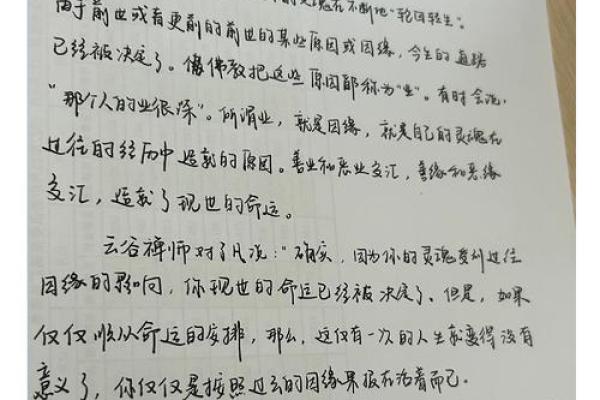 灵魂在不断地“轮回转生”。
由于前世或者更前的前世的某些原因或因缘，今生的道路
已经被决定了。像佛教把这些原因都称为“业”。有时会说，
“那个人的业很深”。所谓业，就是因缘，就是自己的灵魂在
过往的经历中造就的原因。善业和恶业交汇，善缘和恶缘
交汇，造就了现世的命运。
云谷禅师对了凡说：“确实，因为你的灵魂受到过往
因缘的影响，你现世的命运已经被决定了。但是，如果
仅仅顺从命运的安排，那么，这仅有一次的人生就变得没有
意义了，你仅仅是按照过去的因缘果报在活着而已。